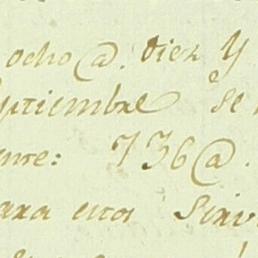 ocho @. Diez y
eptiembre se
ente: 736 @.
para estos Sirv